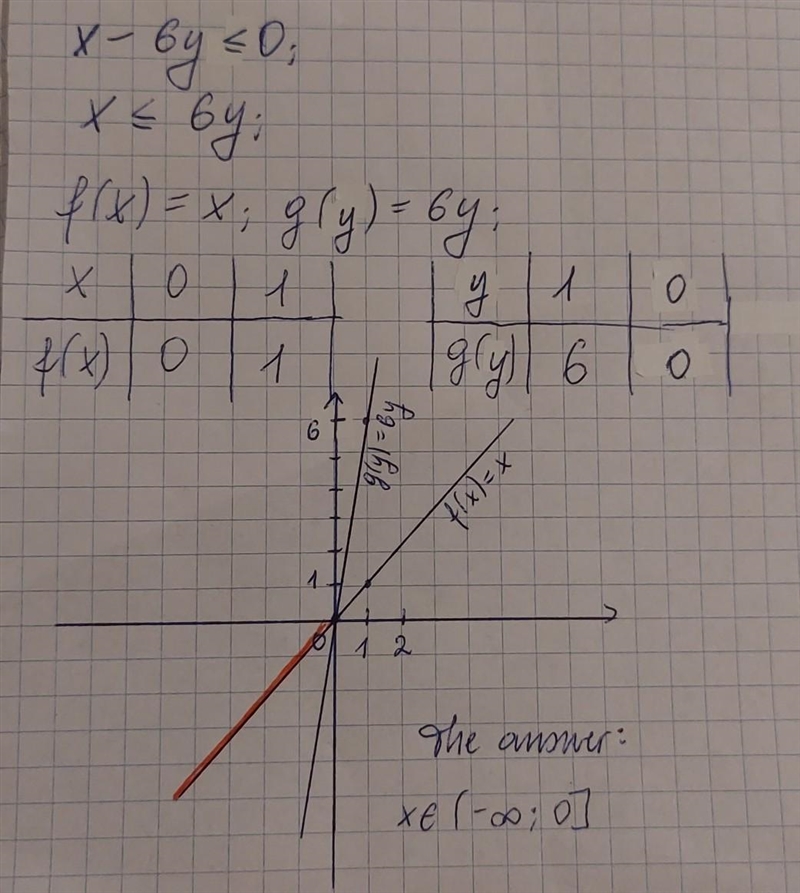 x - 6y ≤ 0;
x ≤ 6y;
f(x) = x; g(y) = 6y;
x 0 1
f(x) 0 1
y 1 0
g(y) 6 0
6
g(y) = 6y
f(x) = x
1
0 1 2
The answer:
x ∈ (-∞; 0]